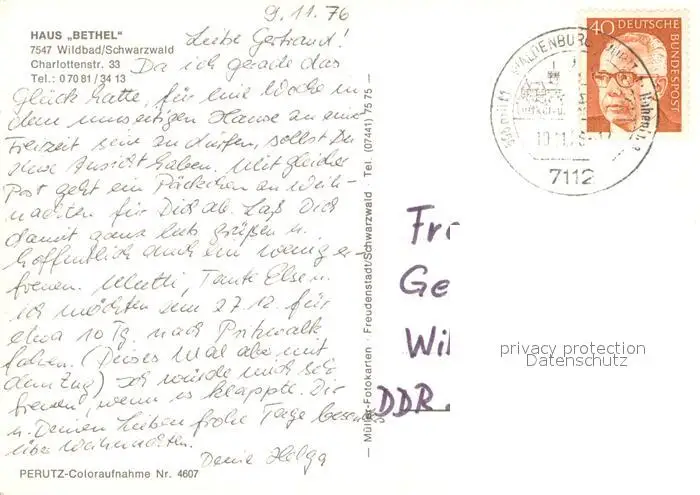 9.11.76
HAUS „BETHEL"
7547 Wildbad/Schwarzwald
Charlottenstr. 33
Tel.: 0 70 81 / 34 13
Liebe Gertraud!
Da ich gerade das
Glück hatte, für eine Woche in
dem umseitigen Hause an einer
Freizeit sein zu dürfen, sollst Du
eine Ansicht haben. Mit gleicher
Post geht ein Päckchen zu Weih-
nachten für Dich ab. Laß Dich
damit ganz lieb grüßen u.
hoffentlich auch ein wenig er-
freuen. Mutti, Tante Else u.
ich möchten am 27.12. für
etwa 10 Tg. nach Pritzwalk
fahren. (Dieses Mal aber mit
dem Zug) Ich würde mich sehr
freuen, wenn es klappte. Dir
u. Deinen Lieben frohe Tage besonders
über Weihnachten.
Deine Helga
PERUTZ-Coloraufnahme Nr. 4607
— Müller-Fotokarten · Freudenstadt/Schwarzwald · Tel. (07441) 75 75 —
40 DEUTSCHE
BUNDESPOST
WALDENBURG
7112
Fr
Ge
Wil
DDR
privacy protection
Datenschutz